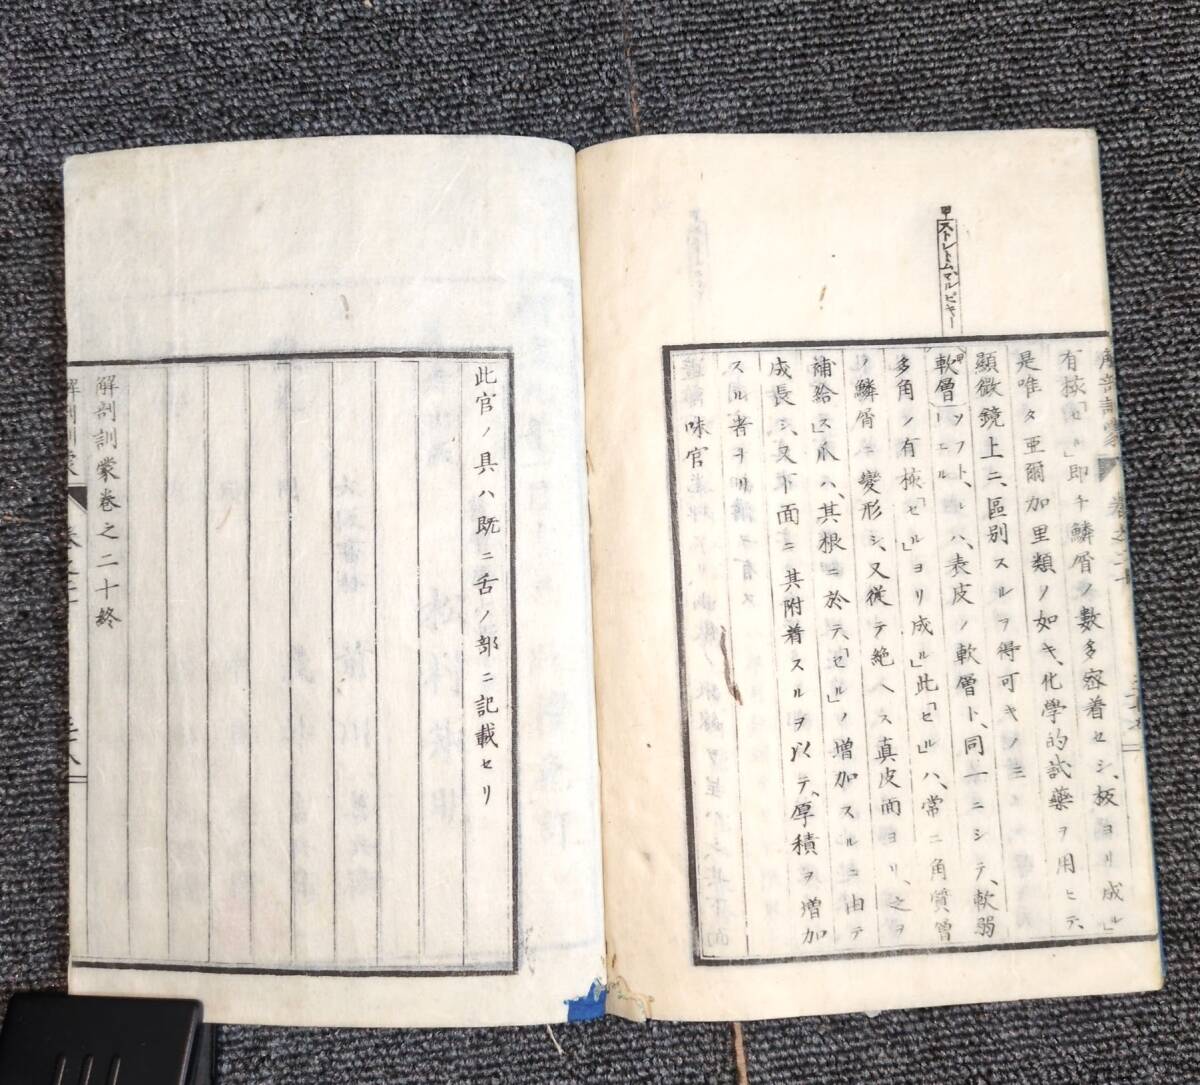 甲ストレトム、マルピギー
解剖訓蒙 卷之二十
有核「セル」即チ鱗屑ノ數多密着セシ、板ヨリ成ル」
是唯タ亜爾加里類ノ如キ、化學的試藥ヲ用ヒテ、
顯微鏡上ニ、區別スルヲ得可キノミ
甲軟層
ハ、表皮ノ軟層ト、同一ニシテ、軟弱
多角ノ有核「セル」ヨリ成ル」此「セル」ハ、常ニ角質層
ノ鱗屑ニ變形シ、又従テ絶ヘス真皮面ヨリ、之ヲ
補給ス」爪ハ、其根ニ於テ、「セル」ノ増加スルニ由テ
成長シ、又下面ニ其附着スルヲ以テ、厚積ヲ増加
スル者ナリ
味官
此官ノ具ハ既ニ舌ノ部ニ記載セリ
解剖訓蒙卷之二十終
解剖訓蒙